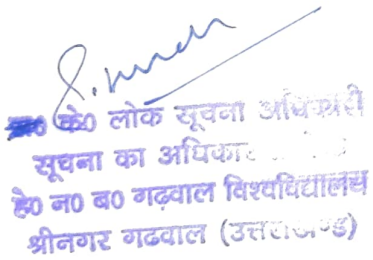 के0 लोक सूचना अधिकारी
सूचना का अधिकार
हे0 न0 ब0 गढ़वाल विश्वविद्यालय
श्रीनगर गढवाल (उत्तराखण्ड)